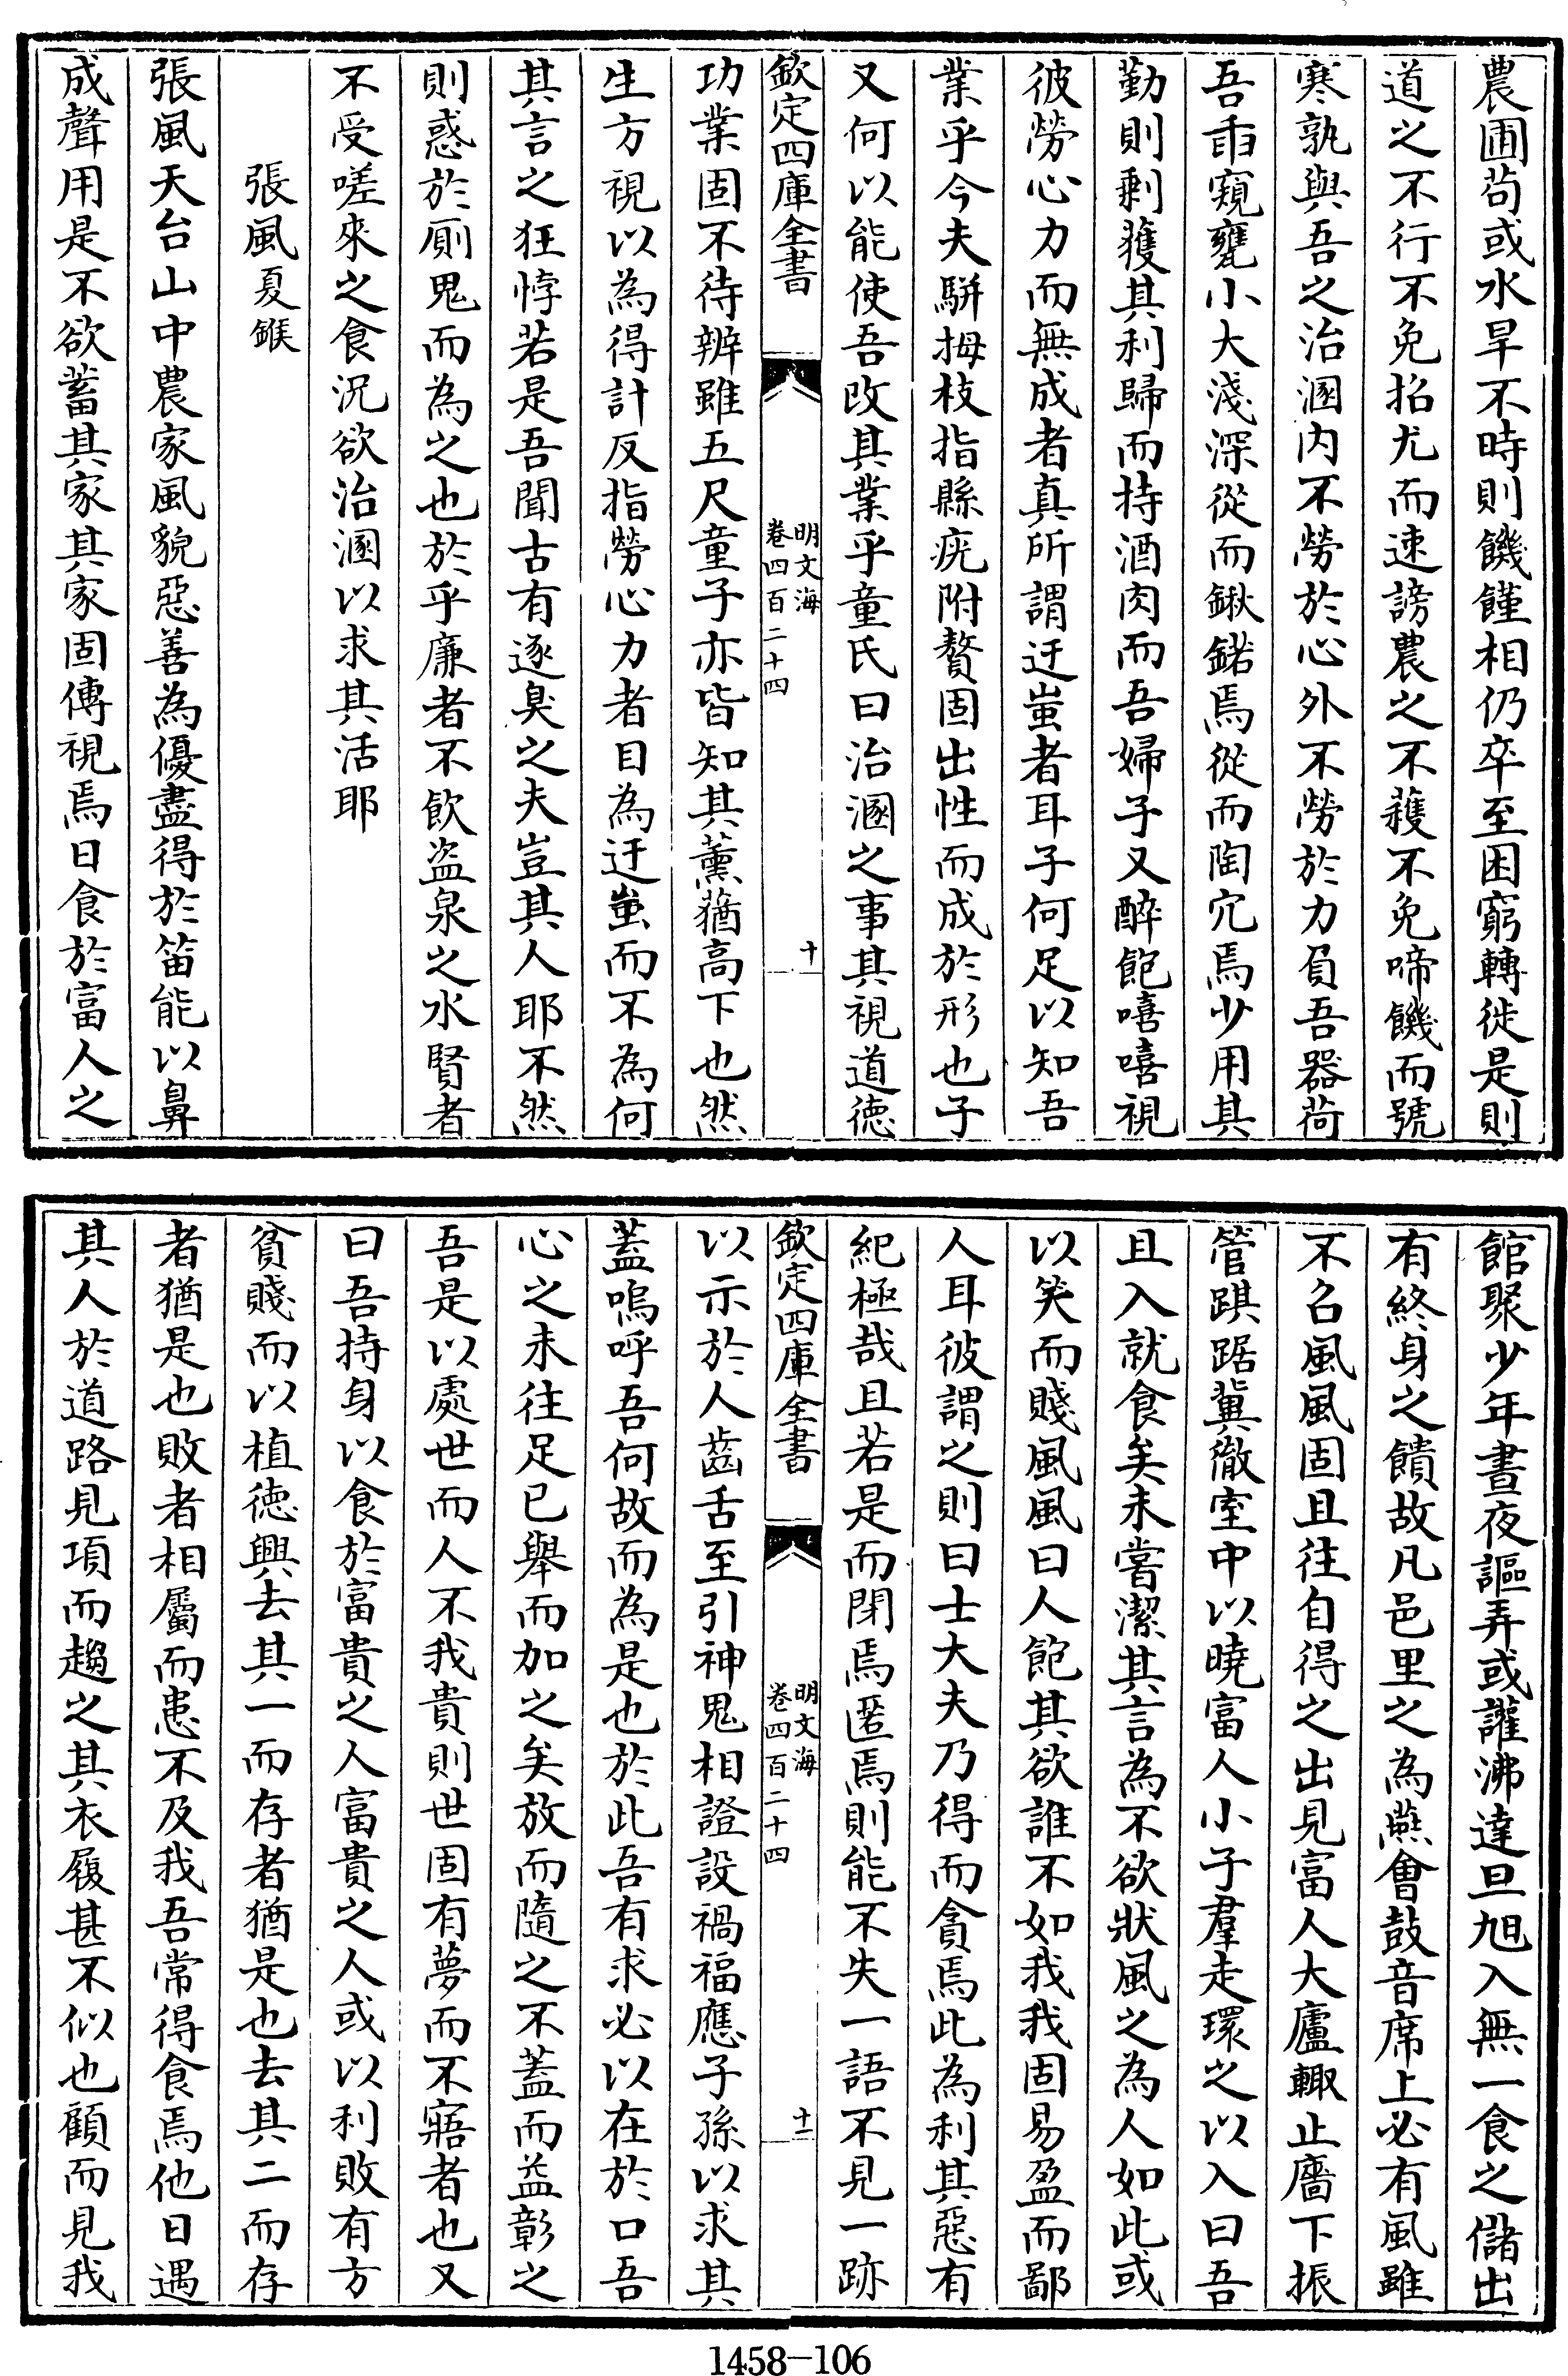 農圃茍或水旱不時則饑饉相仍卒至困窮轉徙是則
道之不行不免招尤而速謗農之不穫不免啼饑而號
寒孰與吾之治溷内不勞於心外不勞於力負吾器荷
吾畚窺甕小大淺深從而鍬鍩焉從而陶冗焉少用其
勤則剰獲其利歸而持酒肉而吾婦子又醉飽嘻嘻視
彼勞心力而無成者真所謂迂蚩者耳子何足以知吾
業乎今夫駢拇枝指縣疣附贅固出性而成於形也子
又何以能使吾改其業乎童氏曰治溷之事其視道德
欽定四庫全書
明文海
卷四百二十四
十
功業固不待辨雖五尺童子亦皆知其薰蕕高下也然
生方視以為得計反指勞心力者目為迂蚩而不為何
其言之狂悖若是吾聞古有逐臭之夫豈其人耶不然
則惑於厠鬼而為之也於乎廉者不飲盗泉之水賢者
不受嗟來之食況欲治溷以求其活耶
張風夏鍭
張風天台山中農家風貌惡善為優盡得於笛能以鼻
成聲用是不欲蓄其家其家固傳視焉日食於富人之
館聚少年晝夜謳弄或讙沸達旦旭入無一食之儲出
有終身之饋故凡邑里之為燕會鼓音席上必有風雖
不召風風固且往自得之出見富人大廬輙止廧下振
管踑踞冀徹室中以曉富人小子羣走環之以入曰吾
且入就食矣未嘗潔其言為不欲狀風之為人如此或
以笑而賤風風曰人飽其欲誰不如我我固易盈而鄙
人耳彼謂之則曰士大夫乃得而貪焉此為利其惡有
紀極哉且若是而閉焉匿焉則能不失一語不見一跡
欽定四庫全書
明文海
卷四百二十四
十一
以示於人齒舌至引神鬼相證設禍福應子孫以求其
蓋嗚呼吾何故而為是也於此吾有求必以在於口吾
心之未往足已舉而加之矣放而隨之不蓋而益彰之
吾是以處世而人不我貴則世固有夢而不寤者也又
曰吾持身以食於富貴之人富貴之人或以利敗有方
貧賤而以植徳興去其一而存者猶是也去其二而存
者猶是也敗者相屬而患不及我吾常得食焉他日遇
其人於道路見項而趨之其衣履甚不似也顧而見我
1458-106